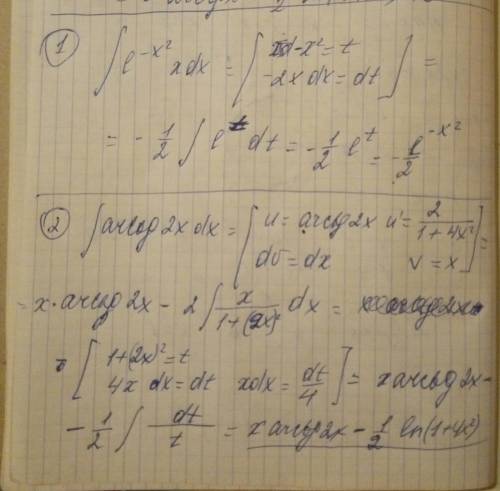 ① ∫ e^{-x²} x dx = [ -x² = t
-2x dx = dt ] =
= -1/2 ∫ e^t dt = -1/2 e^t = -e^{-x²}/2
② ∫ arctg 2x dx = [ u = arctg 2x u' = 2/(1+4x²)
dv = dx v = x ] =
= x · arctg 2x - 2 ∫ x/(1+(2x)²) dx =
[ 1+(2x)² = t
4x dx = dt x dx = dt/4 ] = x arctg 2x -
- 1/2 ∫ dt/t = x arctg 2x - 1/2 ln(1+4x²)